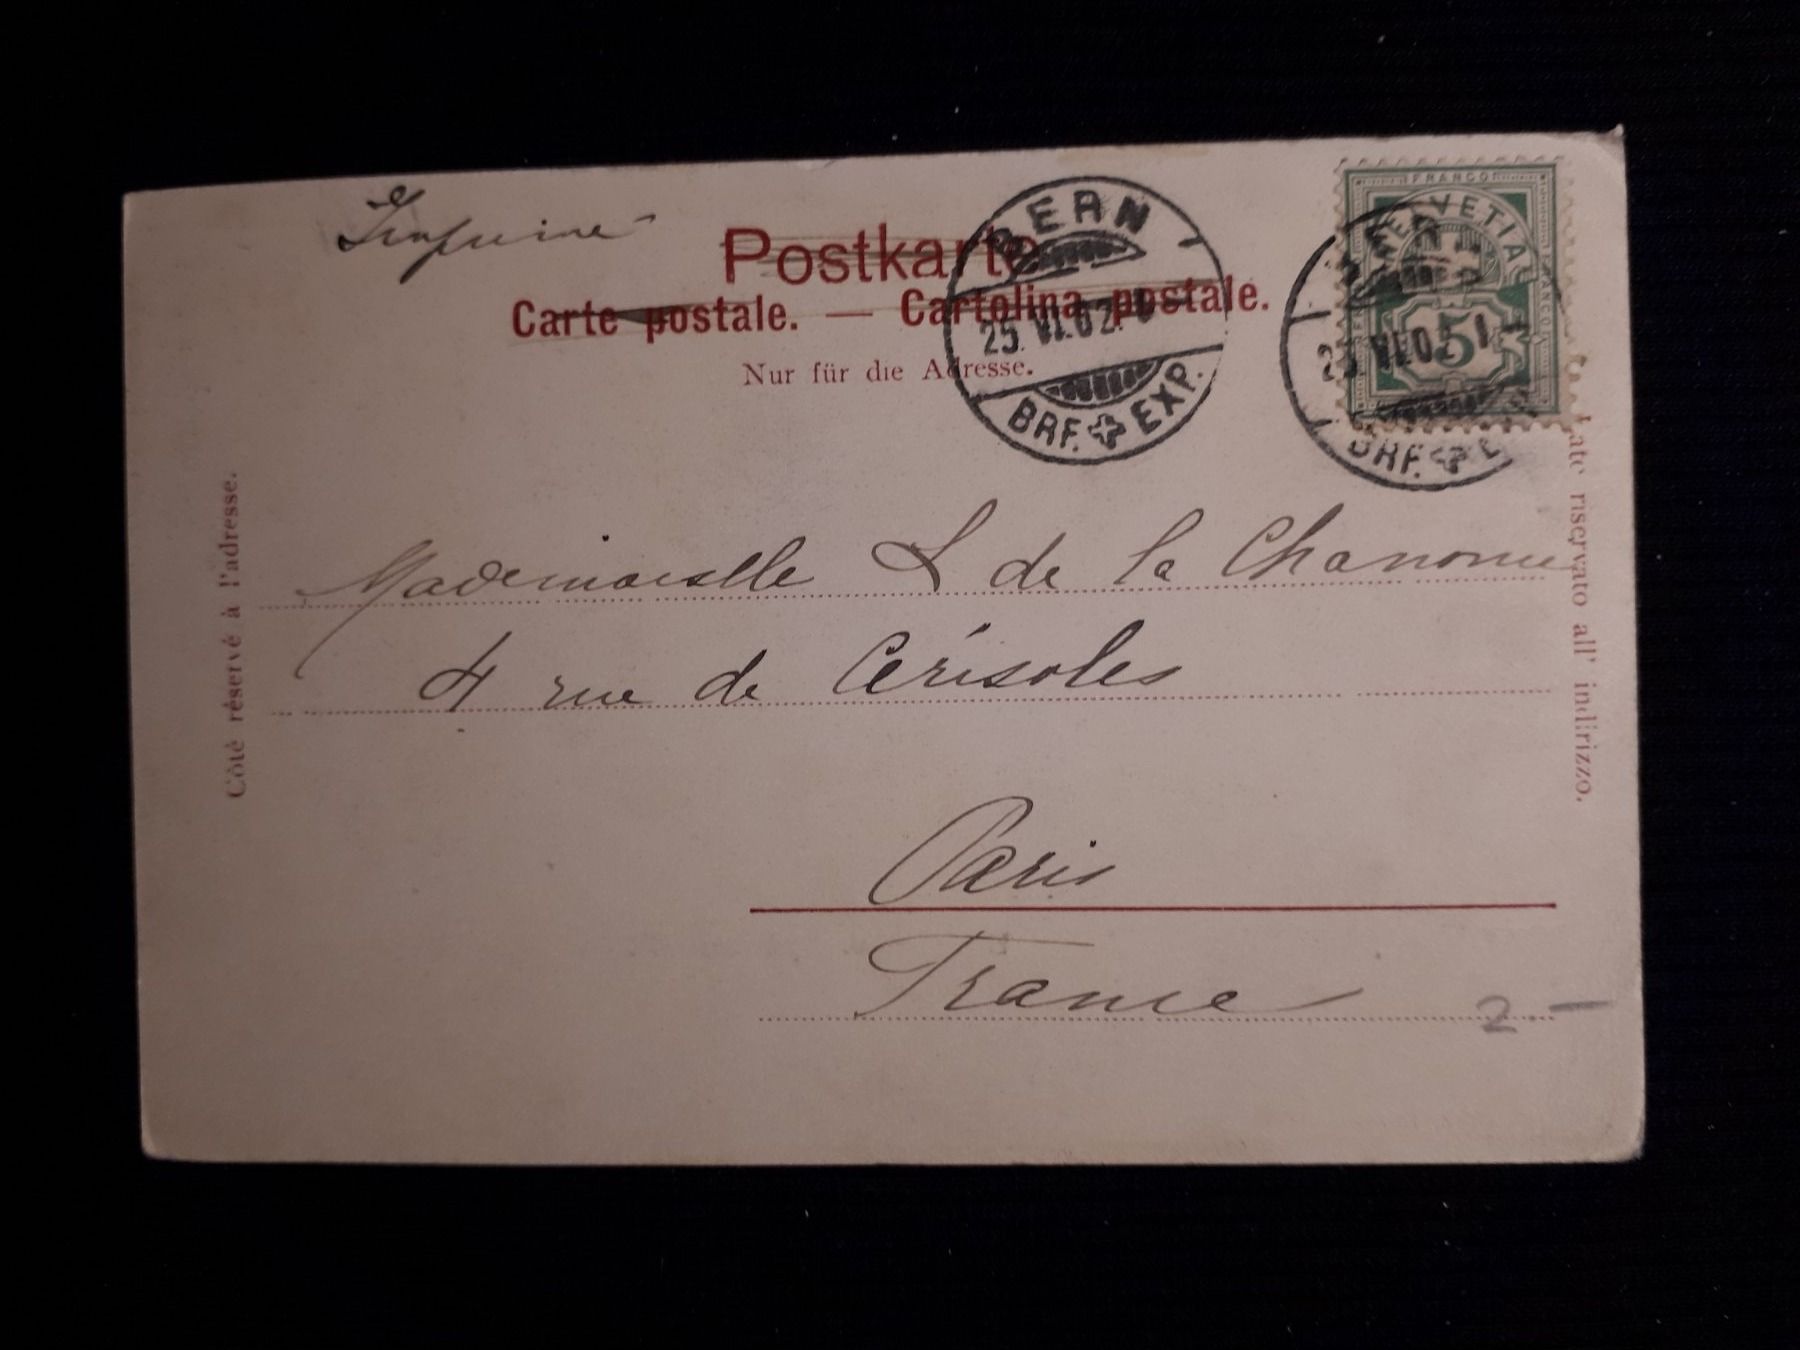 Imprimé
Postkarte
Carte postale. — Cartolina postale.
Nur für die Adresse.
BERN
25. VI. 02.
BRF. EXP.
FRANCO
HELVETIA
FRANCO
5
VI. 02
BRF.
Côté réservé à l'adresse.
Lato riservato all' indirizzo.
Mademoiselle L de la Chanonie
4 rue de Cérisoles
Paris
France
2.—